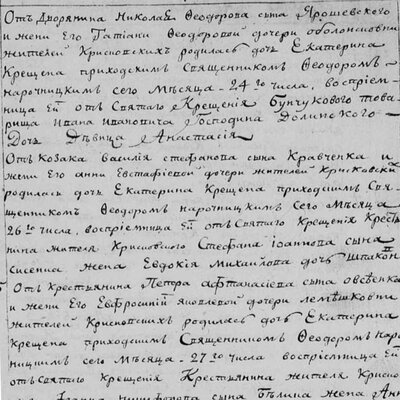 Отъ Дворянина Николая Феодорова сына Ярошевского
и жени Его Татіани Феодоровой дочери оболонсковни
жителей Крисповскихъ родилась дочь Екатерина
Крещена приходскимъ Священникомъ Феодоромъ
нарочницкимъ сего Мѣсяца 24го числа, воспріем-
ница Ей отъ Святаго Крещенія Бунчукового това-
рища Ивана Ивановича Господина Долинского
Дочь Дѣвица Анастасія
Отъ козака василія стефанова сына Кравченка и
жени Его анни Евстафіевой дочери жителей
родилась дочь Екатерина Крещена приходскимъ Свя-
щенникомъ Феодоромъ нарочницкимъ Сего Мѣсяца
26го числа, воспріемница Ей отъ Святаго Крещенія Крестя-
нина жителя Стефана іоаннова сына
жена Евдокія Михайлова дочь
Отъ Крестьянина Петра афтанасіева сына овсѣенка
и жени Его Евфросиніи яковлевой дочери
жителей Крисповскихъ родилась дочь Екатерина
Крещена приходскимъ Священникомъ Феодоромъ наро-
чницкимъ сего Мѣсяца 27го числа воспріемница Ей
отъ Святаго Крещенія Крестьянина жителя
сына жена